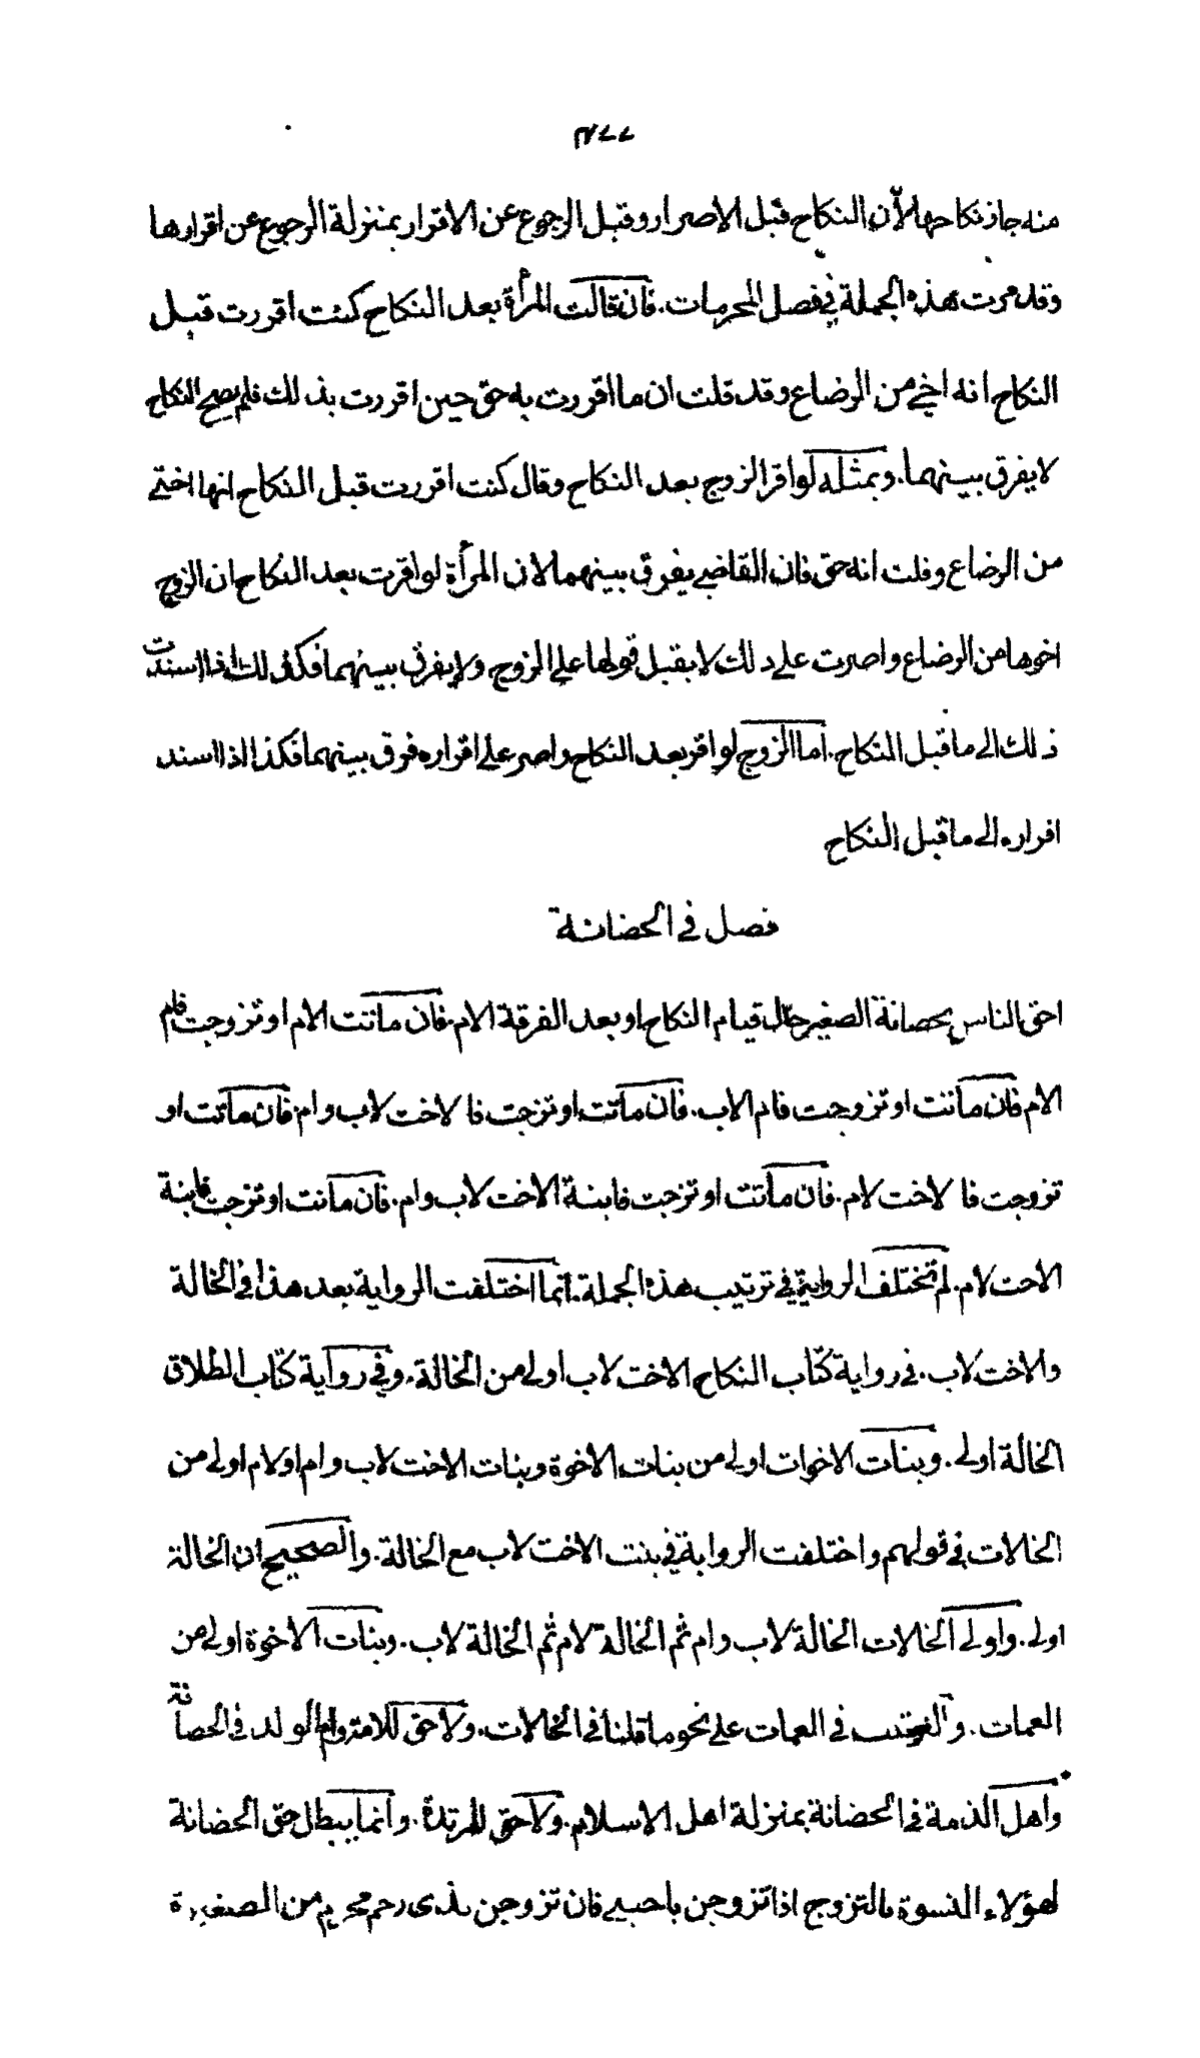 منه جاز نكاحها لأن النكاح قبل الاصرار وقبل الرجوع عن الاقرار بمنزلة الرجوع عن اقرارها
وقد مرت هذه الجملة في فصل المحرمات. فان قالت المرأة بعد النكاح كنت اقررت قبل
النكاح انه اخي من الرضاع وقد قلت ان ما اقررت به حق حين اقررت بذلك فلم يصح النكاح
لا يفرق بينهما. وبمثله لو اقر الزوج بعد النكاح وقال كنت اقررت قبل النكاح انها اختي
من الرضاع وقلت انه حق فان القاضي يفرق بينهما لان المرأة لو اقرت بعد النكاح ان الزوج
اخوها من الرضاع واصرت على ذلك لا يقبل قولها على الزوج ولا يفرق بينهما فكذلك اذا اسندت
ذلك الى ما قبل النكاح. اما الزوج لو اقر بعد النكاح واصر على اقراره فرق بينهما فكذا اذا اسند
اقراره الى ما قبل النكاح
فصل في الحضانة
احق الناس بحضانة الصغير حال قيام النكاح او بعد الفرقة الام. فان ماتت الام او تزوجت فام
الام فان ماتت او تزوجت فام الاب. فان ماتت او تزجت فالاخت لاب وام. فان ماتت او
تزوجت فالاخت لام. فان ماتت او تزجت فابنة الاخت لاب وام. فان ماتت او تزجت فابنة
الاخت لام. لم تختلف الرواية في ترتيب هذه الجملة. انما اختلفت الرواية بعد هذا في الخالة
والاخت لاب. في رواية كتاب النكاح الاخت لاب اولى من الخالة. وفي رواية كتاب الطلاق
الخالة اولى. وبنات الاخوات اولى من بنات الاخوة وبنات الاخت لاب وام او لام اولى من
الخالات في قولهم واختلفت الرواية في بنت الاخت لاب مع الخالة. والصحيح ان الخالة
اولى. واولى الخالات الخالة لاب وام ثم الخالة لام ثم الخالة لاب. وبنات الاخوة اولى من
العمات. والترتيب في العمات على نحو ما قلنا في الخالات. ولا حق للامة وام الولد في الحضانة
واهل الذمة في الحضانة بمنزلة اهل الاسلام. ولا حق للمرتدة. وانما يبطل حق الحضانة
لهؤلاء النسوة بالتزوج اذا تزوجن باجنبي فان تزوجن بذى رحم محرم من الصغيرة